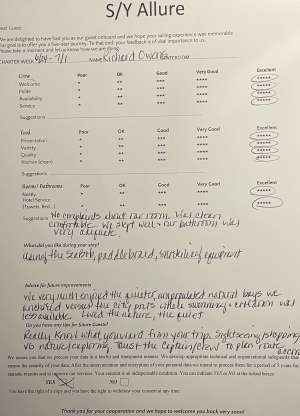 S/Y Allure
Dear Guest
We are delighted to have had you as our guest onboard and we hope your sailing experience was memorable
Our goal is to offer you a five-star journey. To that end, your feedback is of vital importance to us.
Please take a moment and let us know how we are doing.
CHARTER WEEK 6/24 - 7/1 NAME Richard Owens
Crew Poor OK Good Very Good Excellent
Welcome * ** *** **** *****
Polite * ** *** **** *****
Availability * ** *** **** *****
Service * ** *** **** *****
Suggestions
Food Poor OK Good Very Good Excellent
Presentation * ** *** **** *****
Variety * ** *** **** *****
Quality * ** *** **** *****
Kitchen (clean) * ** *** **** *****
Suggestions
Rooms/ Bathrooms Poor OK Good Very Good Excellent
Neatly * ** *** **** *****
Hotel Service
(Towels, Bed...) * ** *** **** *****
Suggestions No complaints about our room. Was clean
comfortable. We slept well & our bathroom was
very adequate.
What did you like during your stay?
using the seabob, paddleboard, snorkeling equipment
Advice for future improvements
We very much enjoyed the quieter, unpopulated natural bays we
anchored versus the city ports where swimming + exploration was
less available. Loved the nature, the quiet
Do you have any tips for future Guests?
Really know what you want from your trip. Sightseeing/shopping
vs nature/exploring. Trust the Captain/crew to plan route
We assure you that we process your data in a lawful and transparent manner. We develop appropriate technical and organizational safeguards that
ensure the security of your data. After the anonymization and encryption of your personal data we intend to process them for a period of 5 years for
statistic reports and to improve our services. Your consent is an indispensable condition. You can indicate YES or NO in the linked boxes:
YES X NO
You have the right of a copy and you have the right to withdraw your consent at any time.
Thank you for your cooperation and we hope to welcome you back very soon!